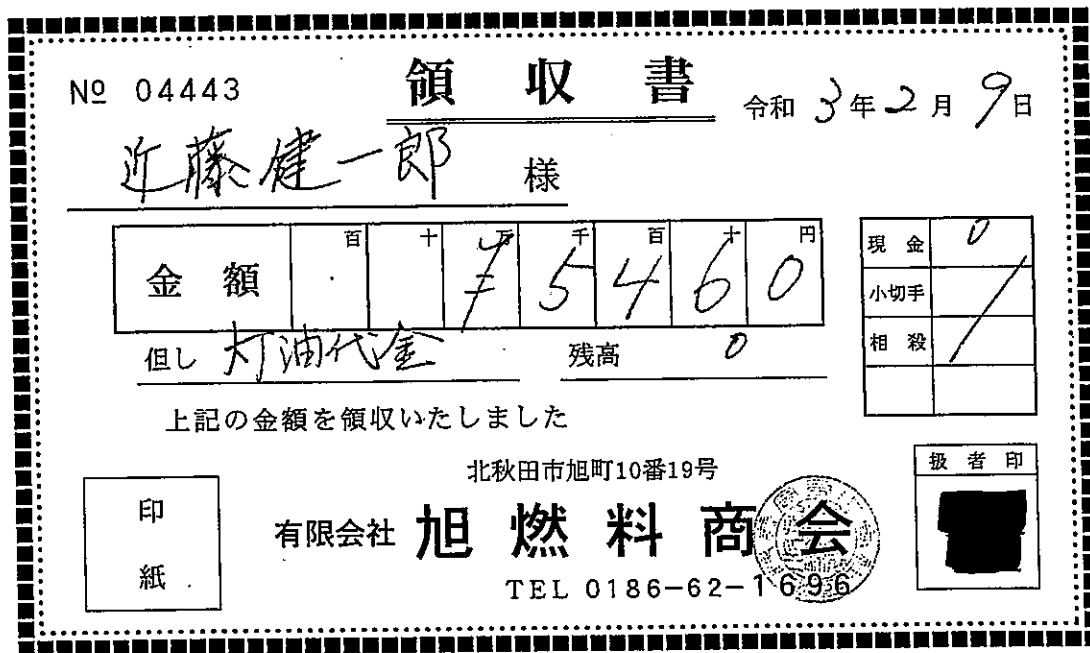 № 04443
領収書
令和 3年2月9日
近藤健一郎 様
金額 百 十 万 千 百 十 円
¥5460
現金 0
小切手
相殺
但し 灯油代金 残高 0
上記の金額を領収いたしました
扱者印
印紙
北秋田市旭町10番19号
有限会社 旭燃料商会
TEL 0186-62-1696